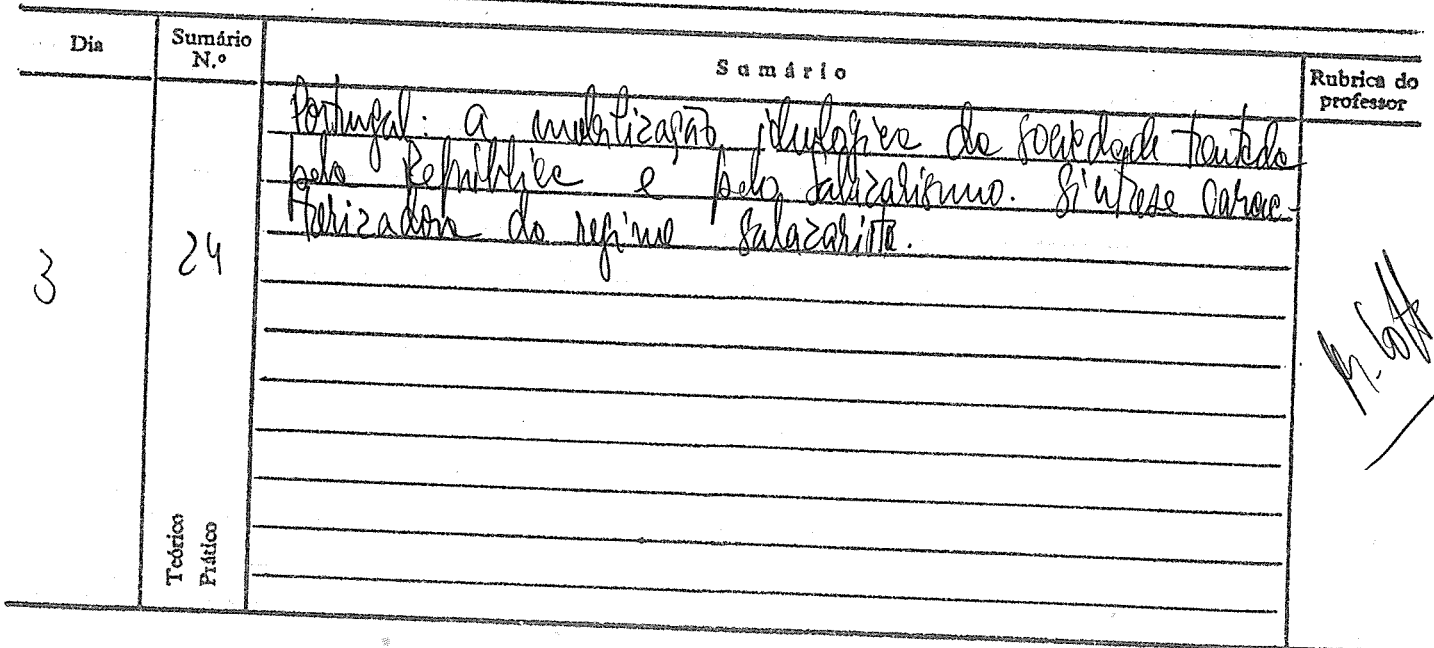 Dia
Sumário N.º
Sumário
Rubrica do professor
3
24
Portugal: a mobilização ideológica da sociedade tentada
pela República e pelo salazarismo. Síntese carac-
terizadora do regime salazarista.
Teórico
Prático